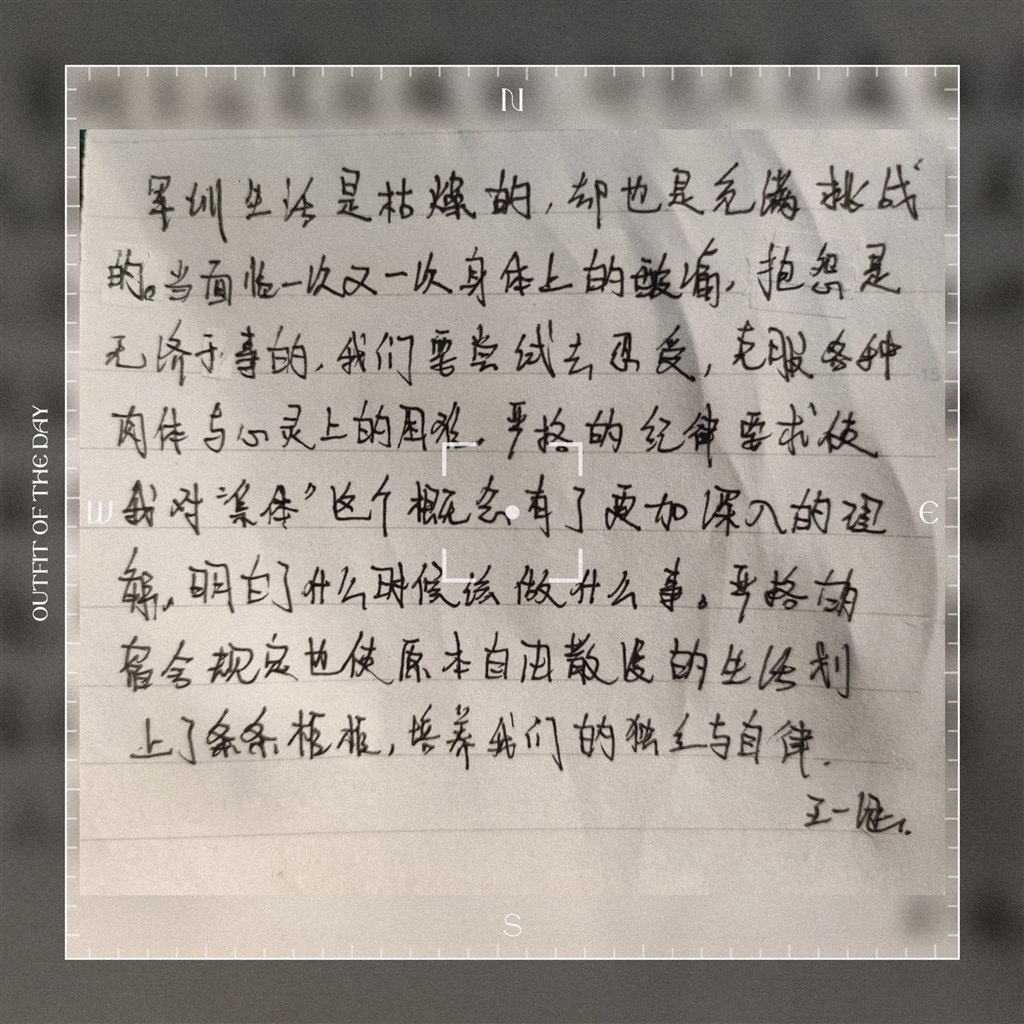 N
军训生活是枯燥的,却也是充满挑战
的。当面临一次又一次身体上的酸痛,抱怨是
无济于事的,我们要尝试去忍受,克服各种
肉体与心灵上的困难。严格的纪律要求使
我对“集体”这个概念有了更加深入的理
解,明白了什么时候该做什么事。严格的
宿舍规定也使原本自由散漫的生活划
上了条条框框,培养我们的独立与自律.
王一
W
E
S
OUTFIT OF THE DAY
15
20